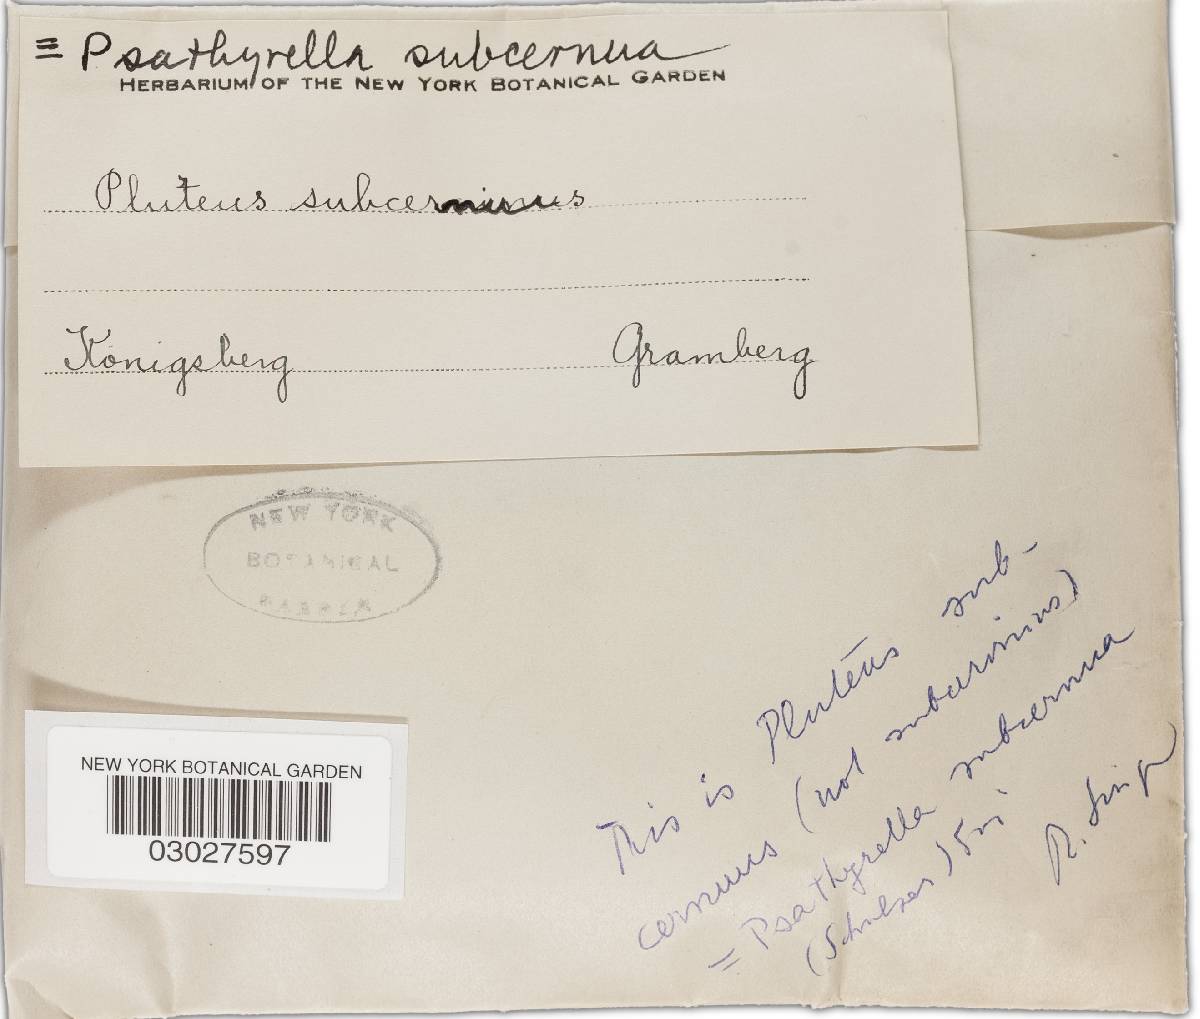 = Psathyrella subcernua
HERBARIUM OF THE NEW YORK BOTANICAL GARDEN
Pluteus subcernuus
Königsberg Gramberg
NEW YORK
BOTANICAL
GARDEN
NEW YORK BOTANICAL GARDEN
03027597
This is Pluteus sub-
cernuus (not
= Psathyrella subcernua
(Schulzer)
R. Singer